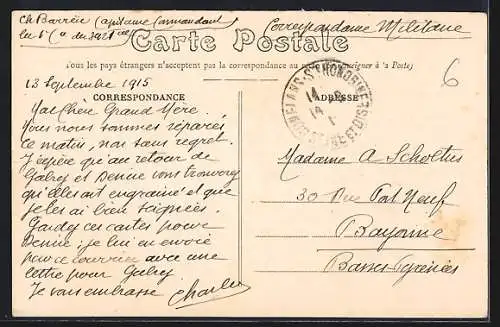 Ch Barrère Capitaine Commandant
Correspondance Militaire
Carte Postale
Tous les pays étrangers n'acceptent pas la correspondance au recto (Se renseigner à la Poste)
13 Septembre 1915
CORRESPONDANCE
ADRESSE
CONFLANS-Ste HONORINE
14 - 9
SEINE ET OISE
6
Ma Chère Grand Mère.
Nous nous sommes séparés
ce matin, non sans regret.
J'espère qu'au retour de
Gabry et Denise vous trouverez
qu'elles ont engraissé et que
je les ai bien soignées.
Gardez ces cartes pour
Denise; je lui en envoie
par ce courrier avec une
lettre pour Gabry.
Je vous embrasse
Charles
Madame A Scholtus
30 Rue Port Neuf
Bayonne
Basses-Pyrénées